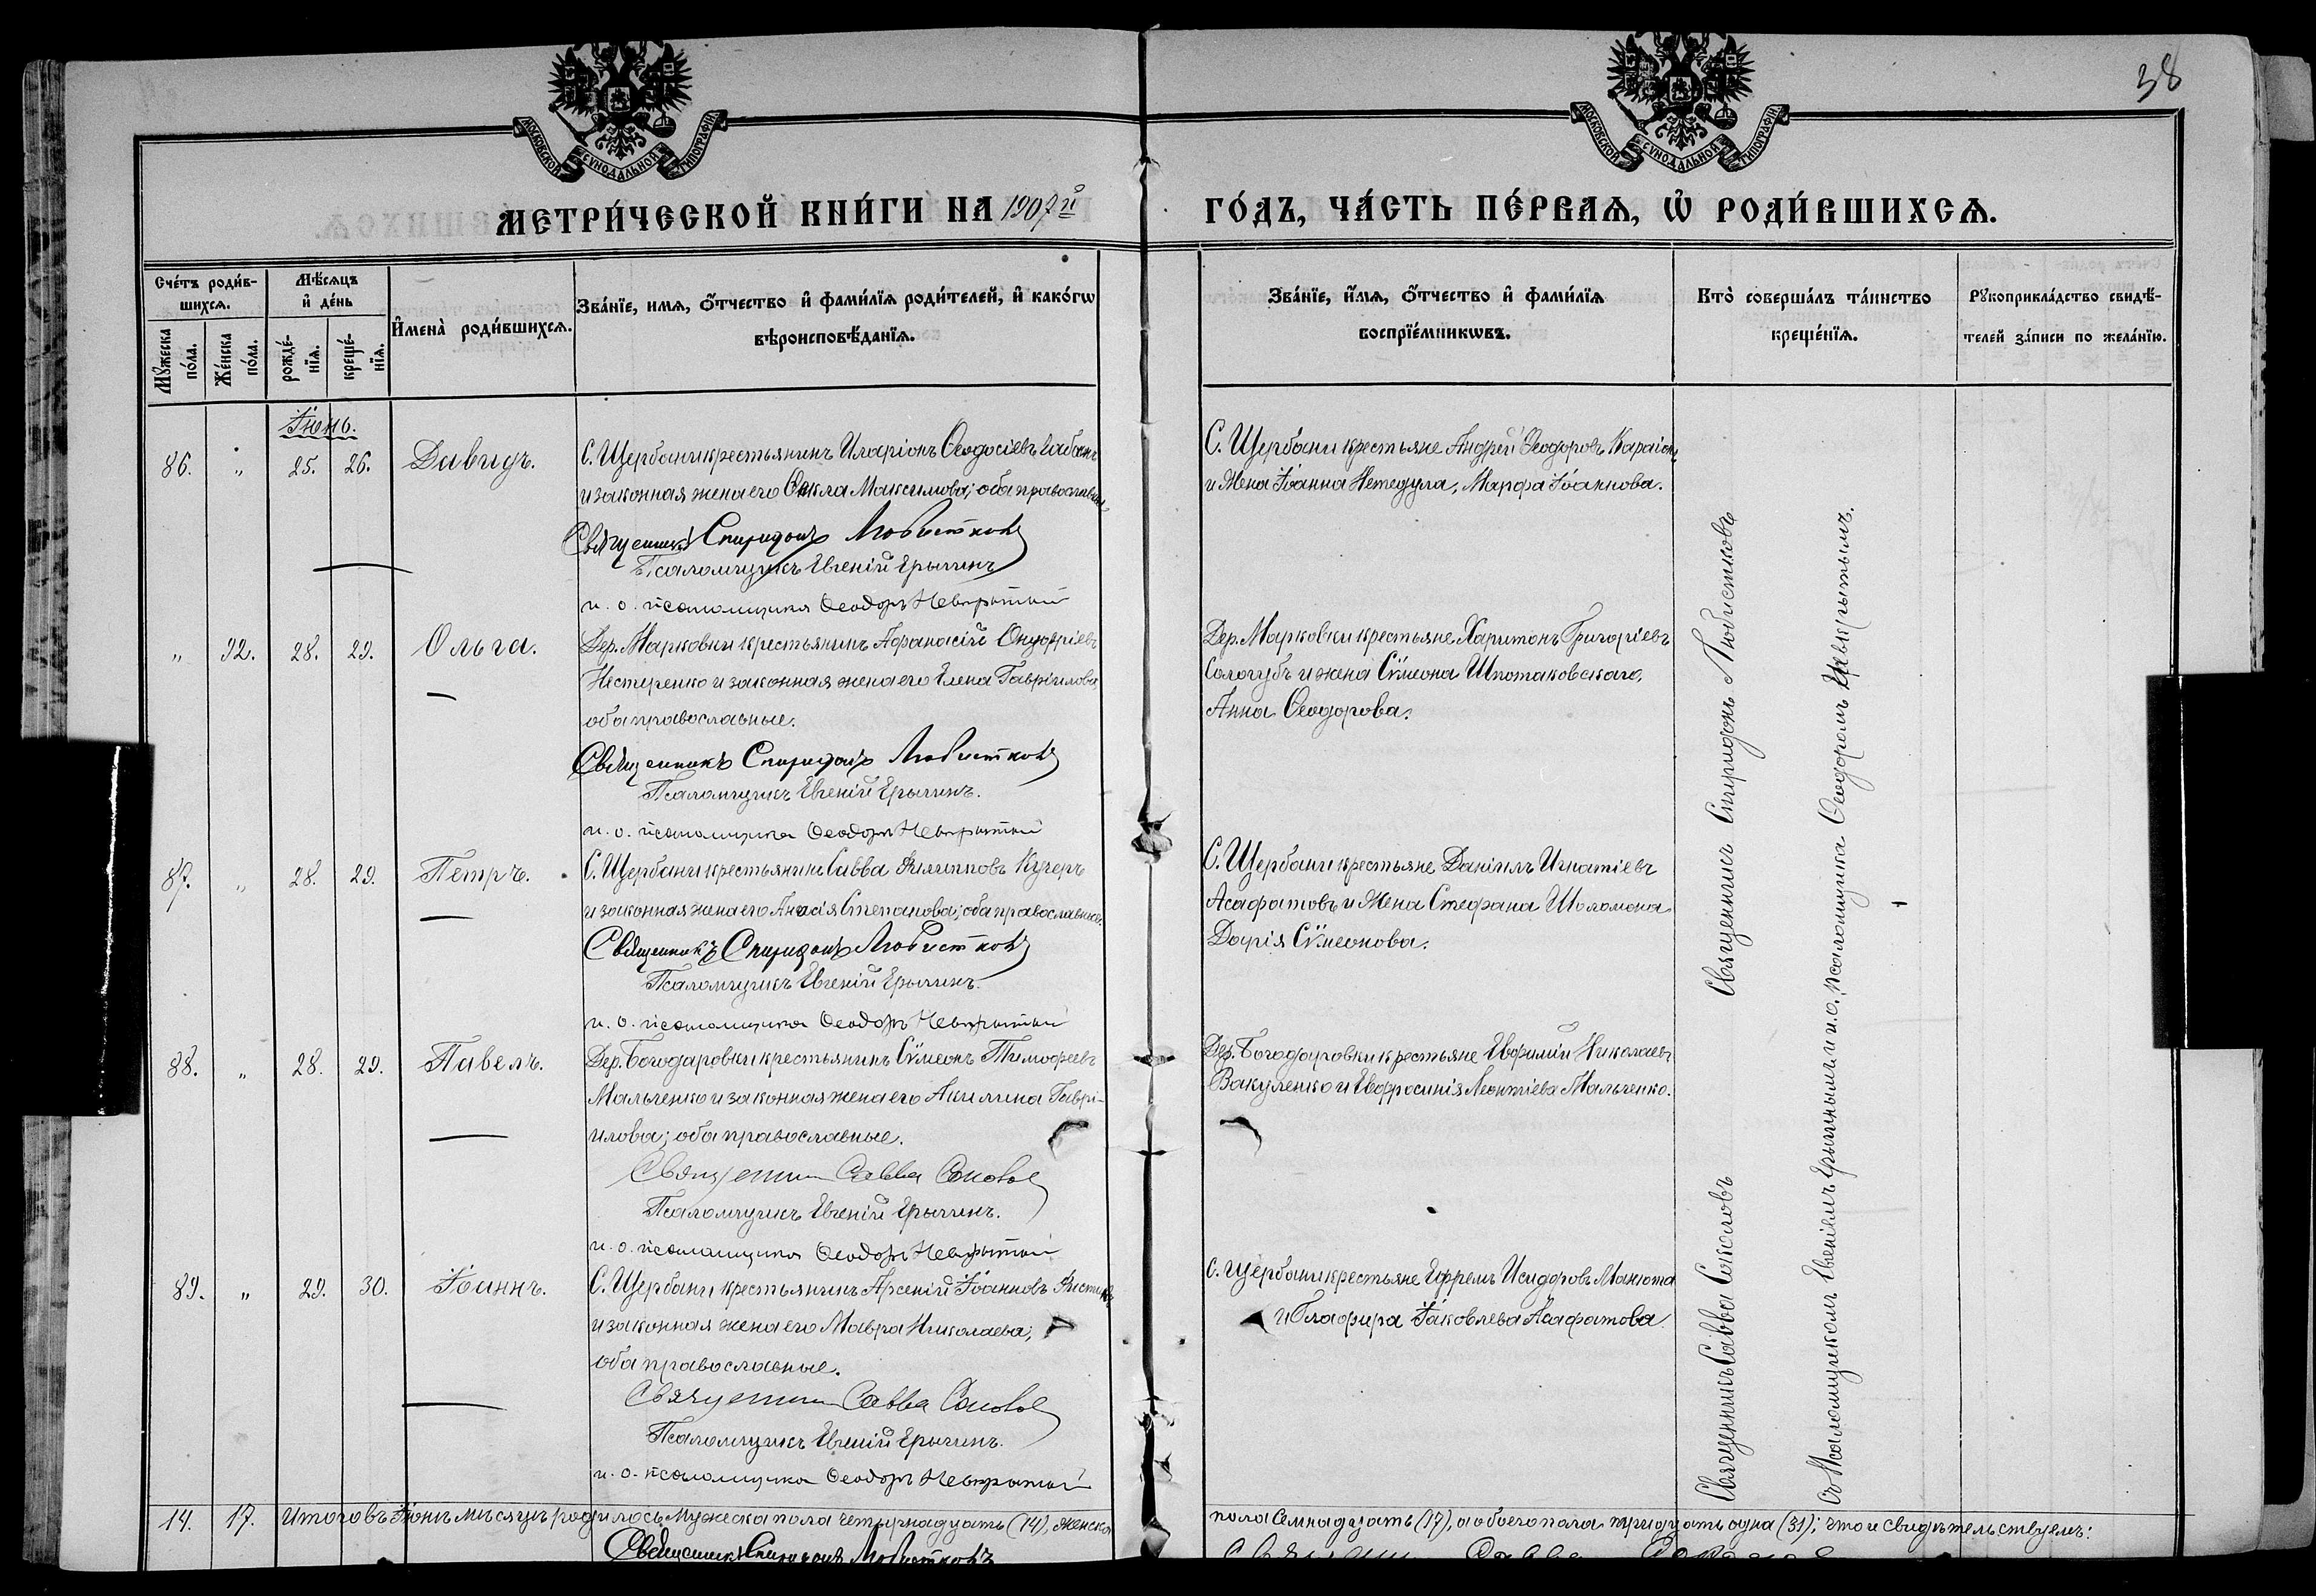 38
МОСКОВСКОЙ СУНОДАЛЬНОЙ ТИПОГРАФІИ
МОСКОВСКОЙ СУНОДАЛЬНОЙ ТИПОГРАФІИ
МЕТРИ́ЧЕСКОЙ КНИ́ГИ НА 1907й ГО́ДЪ, ЧА́СТЬ ПЕ́РВАѦ, Ѡ҆ РОДИ́ВШИХСѦ.
Сче́тъ роди́в-
шихсѧ.
Мꙋ́жеска по́ла.
Же́нска по́ла.
Мѣ́сѧцъ
и҆ де́нь
рожде́-
нїѧ.
креще́-
нїѧ.
И҆мена̀ роди́вшихсѧ.
Зва́нїе, имѧ, ѻ҆́тчество и҆ фами́лїѧ роди́телей, и҆ како́гѡ
вѣроисповѣ́данїѧ.
Зва́нїе, и҆́мѧ, ѻ҆́тчество и҆ фами́лїѧ
воспрїе́мникѡвъ.
Кто̀ соверша́лъ та́инство
креще́нїѧ.
Рꙋкоприкла́дство свидѣ́-
телей за́писи по жела́нїю.
Іюнь.
86. „ 25. 26. Давидъ.
С. Щербани крестьянинъ Иларіонъ Ѳеодосіевъ
и законная жена его Ѳекла Максимова; оба православные
Священникъ Спиридонъ Любистковъ
Псаломщикъ Евгеній Ерыгинъ
и. о. псаломщика Ѳеодоръ Невкрытый
С. Щербани крестьяне Андрей Ѳеодоровъ
и жена Іоанна Нетедула, Марфа Іоаннова.
„ 92. 28. 29. Ольга.
Дер. Марковки крестьянинъ Афанасій Онуфріевъ
Нестеренко и законная жена его Елена Гавріилова,
оба православные.
Священникъ Спиридонъ Любистковъ
Псаломщикъ Евгеній Ерыгинъ.
и. о. псаломщика Ѳеодоръ Невкрытый
Дер. Марковки крестьяне Харитонъ Григоріевъ
Сологубъ и жена Сѵмеона Шпотаковскаго,
Анна Ѳеодорова.
87. „ 28. 29. Петръ.
С. Щербани крестьянинъ Савва Филипповъ Кучеръ
и законная жена его Анасія Степанова; оба православные.
Священникъ Спиридонъ Любистковъ
Псаломщикъ Евгеній Ерыгинъ.
и. о. псаломщика Ѳеодоръ Невкрытый
С. Щербани крестьяне Даніилъ Игнатіевъ
Асафатовъ и жена Стефана Шоломона
Дарія Сѵмеонова.
88. „ 28. 29. Павелъ.
Дер. Богодаровки крестьянинъ Сѵмеонъ Тимофеевъ
Мальченко и законная жена его Акилина Гаврі-
илова; оба православные.
Священникъ Савва Соколовъ
Псаломщикъ Евгеній Ерыгинъ.
и. о. псаломщика Ѳеодоръ Невкрытый
Дер. Богодаровки крестьяне Евфимій Николаевъ
Вакуленко и Евфросинія Леонтіева Мальченко.
89. „ 29. 30. Іоаннъ.
С. Щербани крестьянинъ Арсеній Іоанновъ
и законная жена его Мавра Николаева;
оба православные.
Священникъ Савва Соколовъ
Псаломщикъ Евгеній Ерыгинъ.
и. о. псаломщика Ѳеодоръ Невкрытый
С. Щербани крестьяне Ефремъ Исидоровъ Манюта
и Глафира Іаковлева Асафатова.
Священникъ Спиридонъ Любистковъ
Священникъ Савва Соколовъ
съ Псаломщикомъ Евгеніемъ Ерыгинымъ и и. о. псаломщика Ѳеодоромъ Невкрытымъ.
14. 17. Итого въ Іюнѣ мѣсяцѣ родилось мужеска пола четырнадцать (14), женска
пола семнадцать (17), а обоего пола тридцать одна (31); что и свидѣтельствуемъ:
Священникъ Спиридонъ Любистковъ
Священникъ Савва Соколовъ